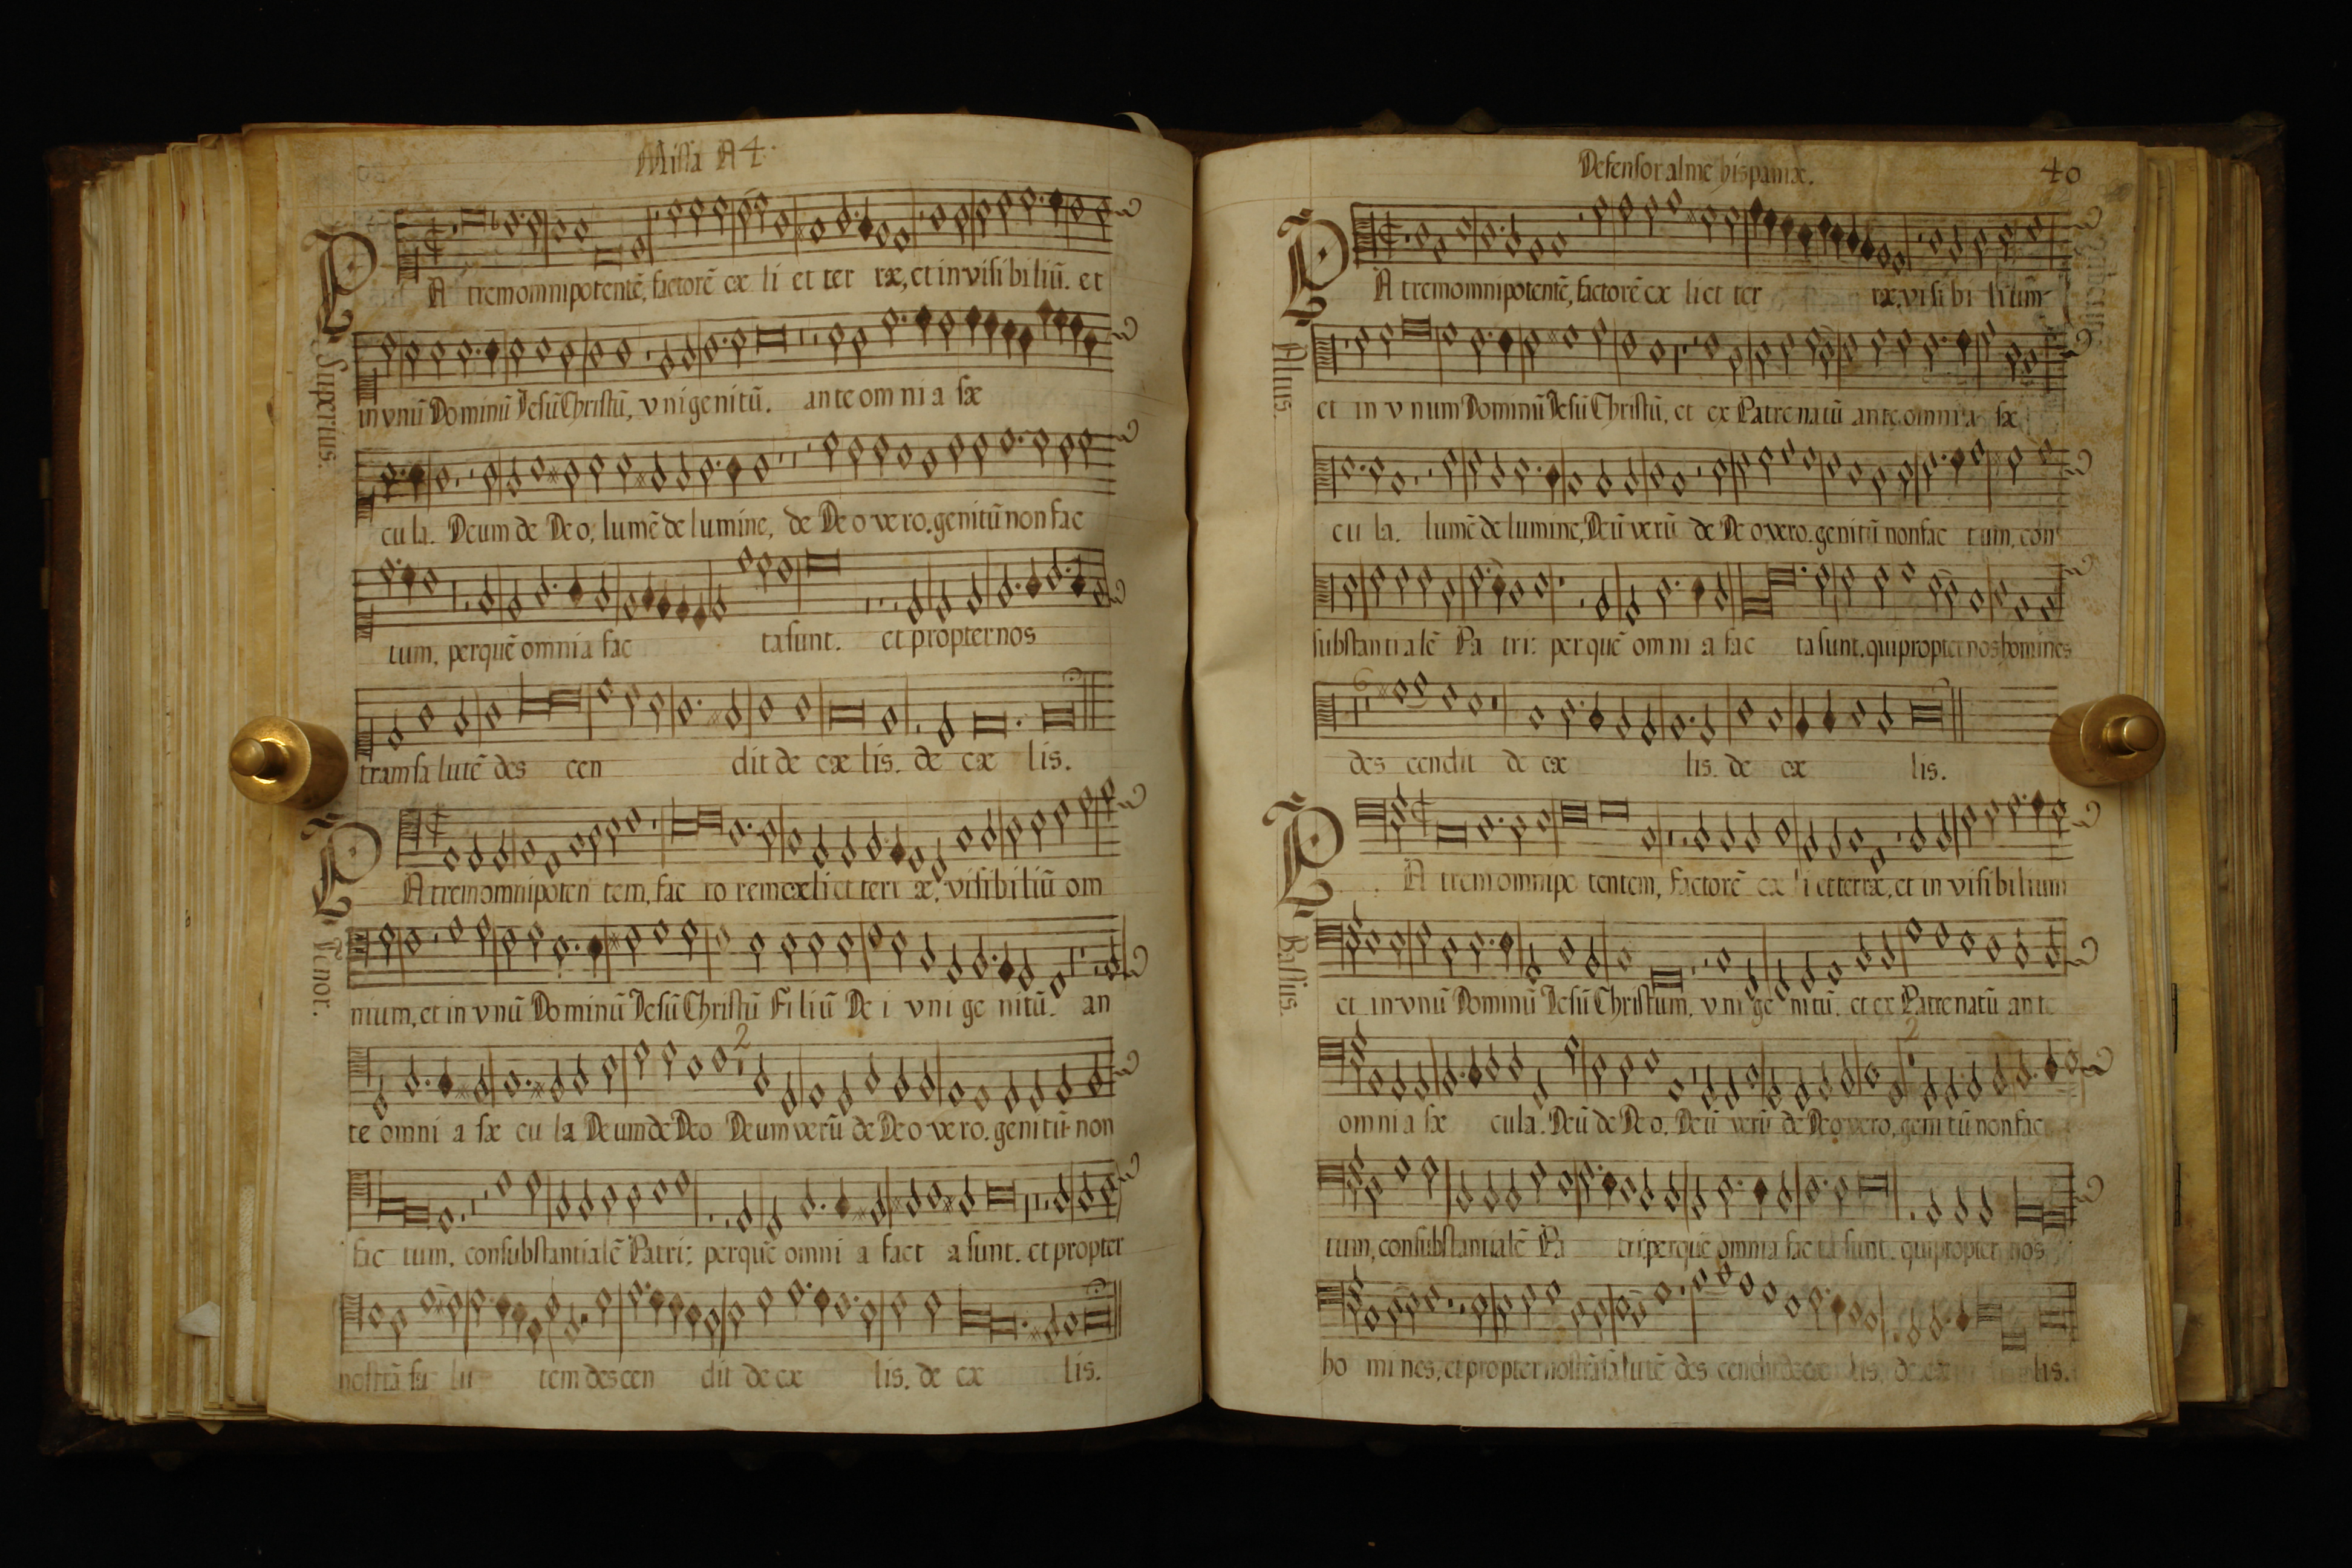 Missa A 4.
PAtrem omnipotentẽ, factorẽ cæ li et ter ræ, et invisi biliũ. et
Superius.
in vnũ Dominũ Jesũ Christũ, vnigenitũ. ante omni a sæ
cu la. Deum de Deo, lumẽ de lumine, de Deo vero. genitũ non fac
tum, per quẽ omnia fac ta sunt. et propter nos
tram sa lutẽ des cen dit de cæ lis. de cæ lis.
PAtrem omnipoten tem, fac to rem cæli et terr æ, visibiliũ om
Tenor.
nium, et in vnũ Dominũ Jesũ Christũ Filiũ De i vni ge nitũ. an
te omni a sæ cu la Deum de Deo Deum verũ de Deo vero. genitũ non
fac tum, consubstantialẽ Patri: per quẽ omni a fact a sunt. et propter
nostrã sa lu tem descen dit de cæ lis. de cæ lis.
Defensor alme hispaniæ.
40
PAtrem omnipotentẽ, factorẽ cæ li et ter ræ, visi bi lium
Altus.
et in vnum Dominũ Jesũ Christũ, et ex Patre natũ ante omnia sæ
cu la. lumẽ de lumine, Deũ verũ de Deo vero. genitũ non fac tum, con
substantialẽ Pa tri: per quẽ omni a fac ta sunt. qui propter nos homines
6
des cendit de cæ lis. de cæ lis.
PAtrem omnipo tentem, factorẽ cæ li et terræ, et in visibilium
Bassus.
et in vnũ Dominũ Jesũ Christum, vni ge nitũ. et ex Patre natũ ante
2
omni a sæ cula. Deũ de Deo. Deũ verũ de Deo vero, genitũ non fac
tum, consubstantialẽ Pa tri: per quẽ omnia fac ta sunt. qui propter nos
ho mines, et propter nostrã salutẽ des cendit de cæ lis, de cæ lis.